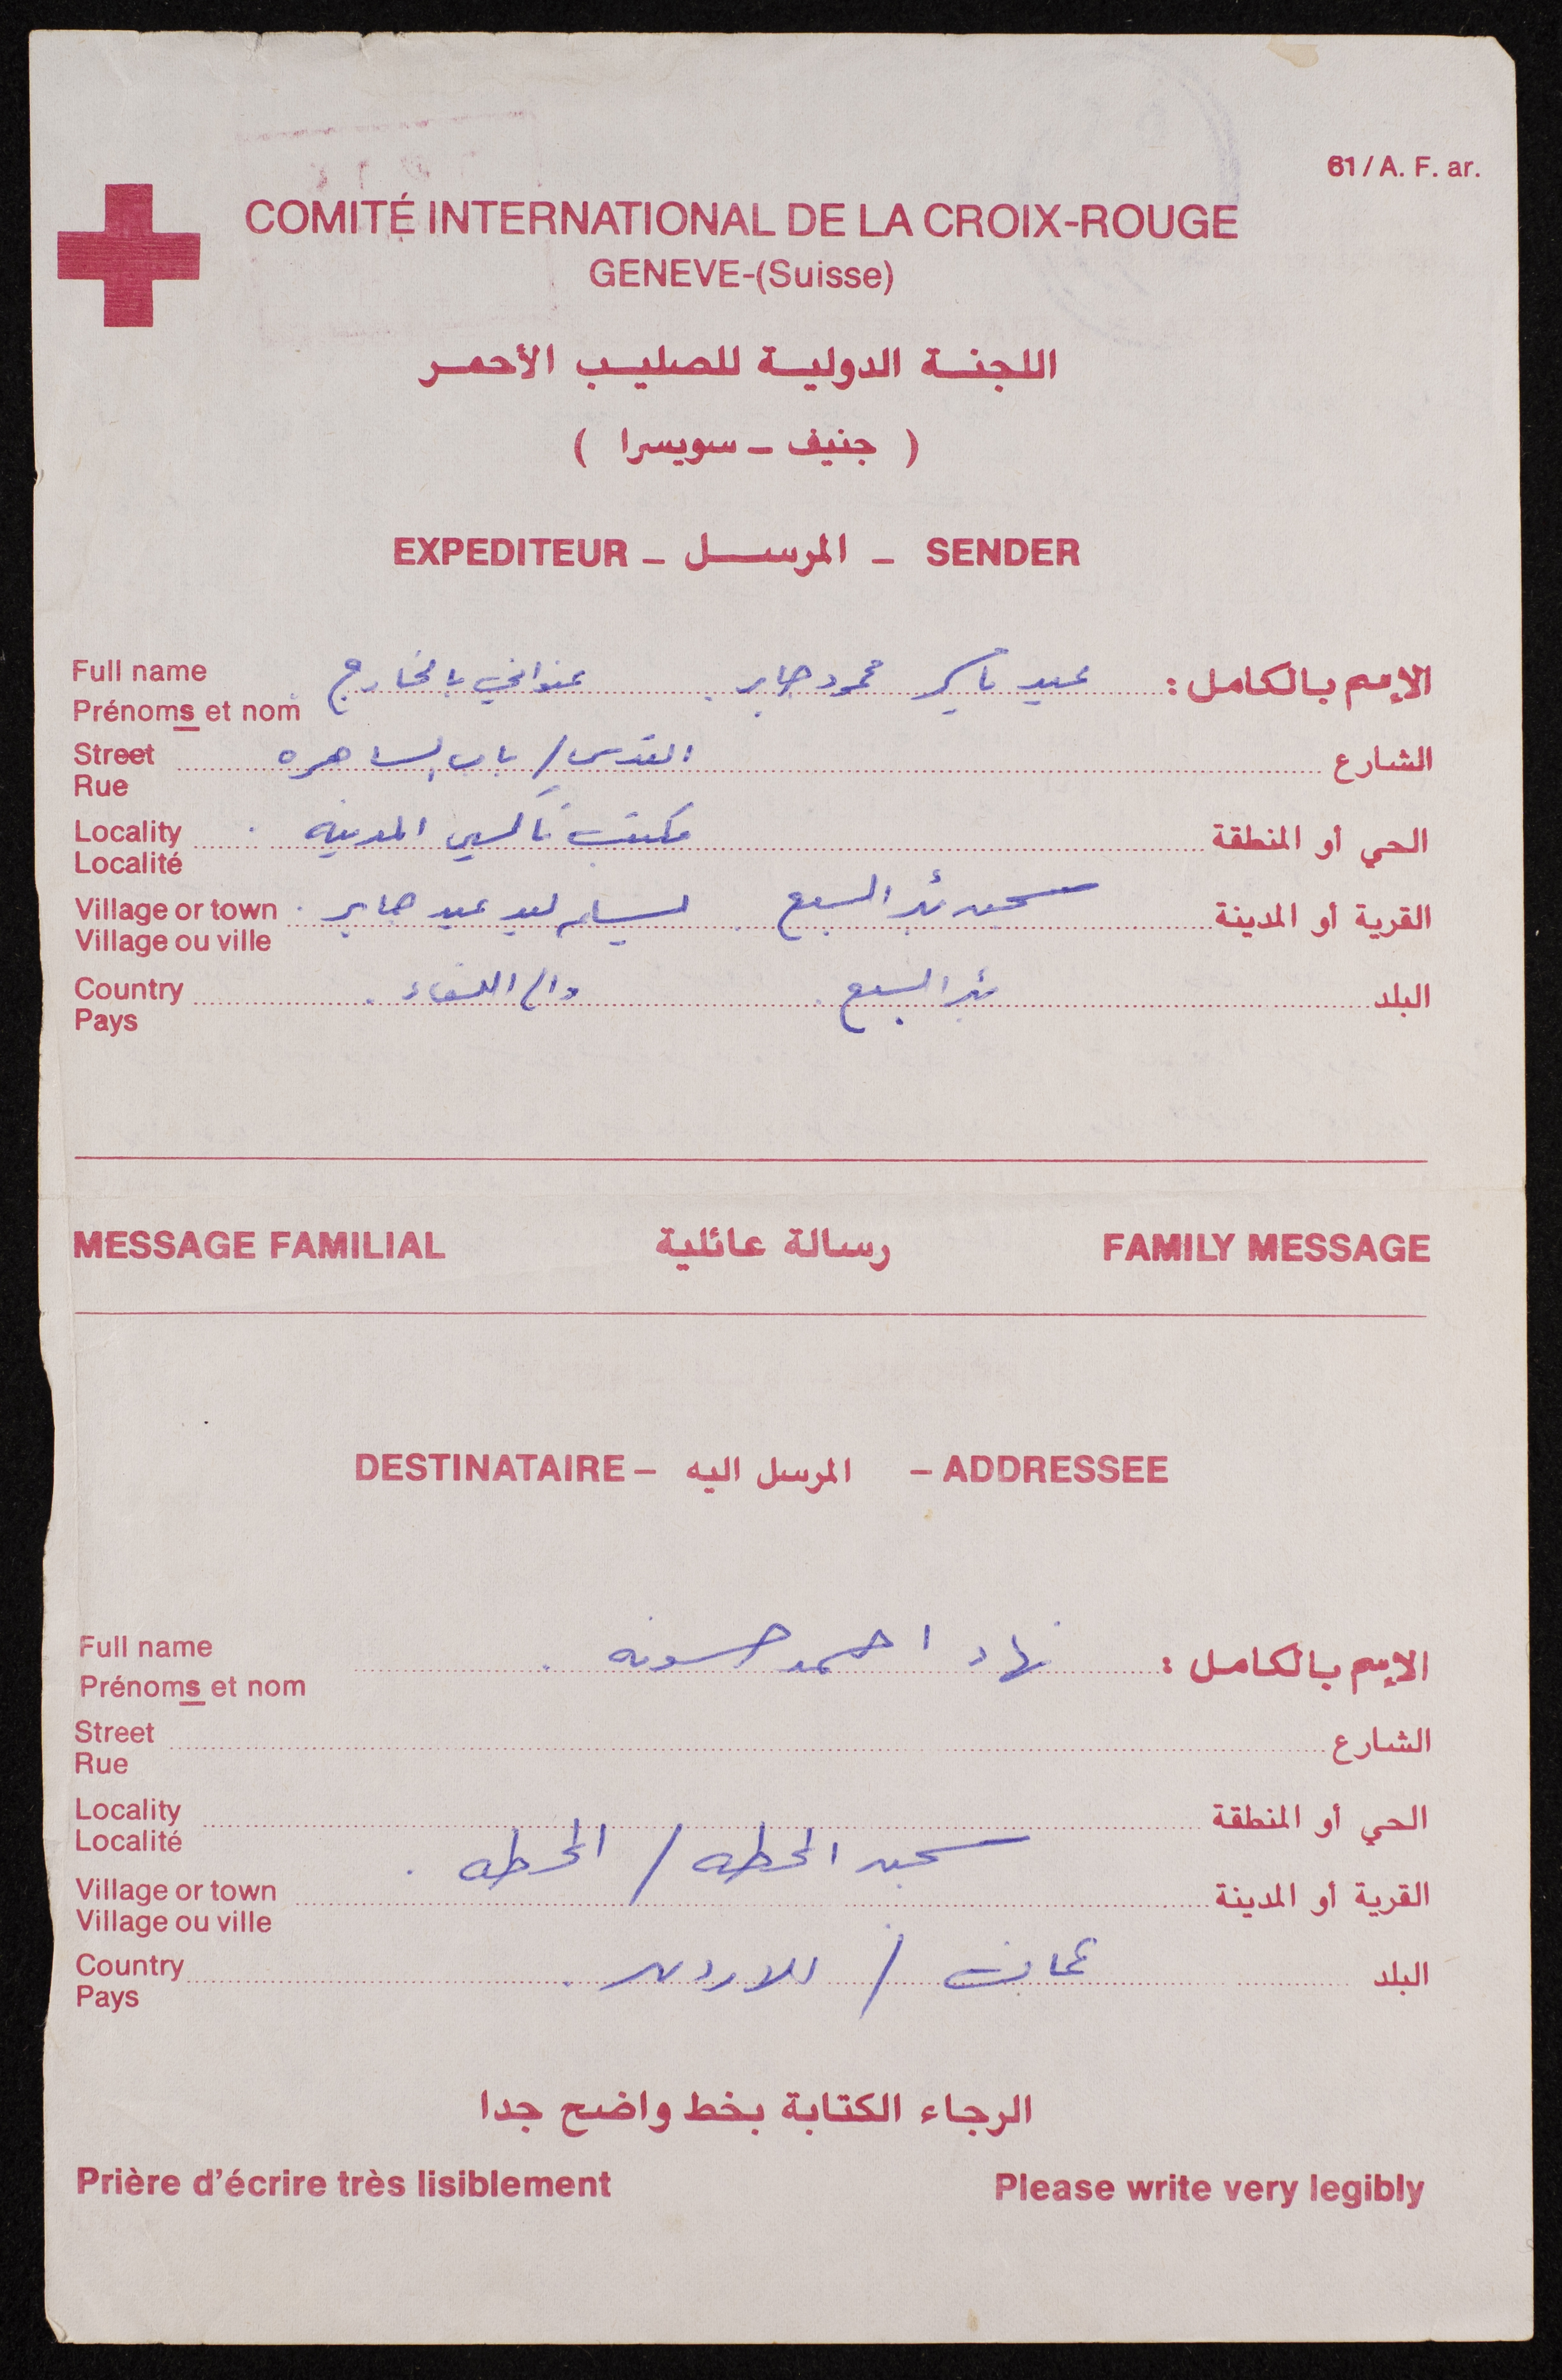 61 / A. F. ar.
COMITÉ INTERNATIONAL DE LA CROIX-ROUGE
GENEVE-(Suisse)
اللجنة الدولية للصليب الأحمر
( جنيف - سويسرا )
EXPEDITEUR - المرسل - SENDER
Full name
Prénoms et nom
الإسم بالكامل : عبيد محمود جابر . عنواني بالخارج
Street
Rue
الشارع القدس / باب الساهره
Locality
Localité
الحي أو المنطقة مكتب تاكسي المدينه
Village or town
Village ou ville
القرية أو المدينة سجن بئر السبع . ليد عبيد جابر .
Country
Pays
البلد بئر السبع .
MESSAGE FAMILIAL رسالة عائلية FAMILY MESSAGE
DESTINATAIRE - المرسل اليه - ADDRESSEE
Full name
Prénoms et nom
الإسم بالكامل : نهاد احمد حسونه .
Street
Rue
الشارع
Locality
Localité
الحي أو المنطقة
Village or town
Village ou ville
القرية أو المدينة سجن المحطه / المحطه .
Country
Pays
البلد عمان / الاردن .
الرجاء الكتابة بخط واضح جدا
Prière d'écrire très lisiblement Please write very legibly